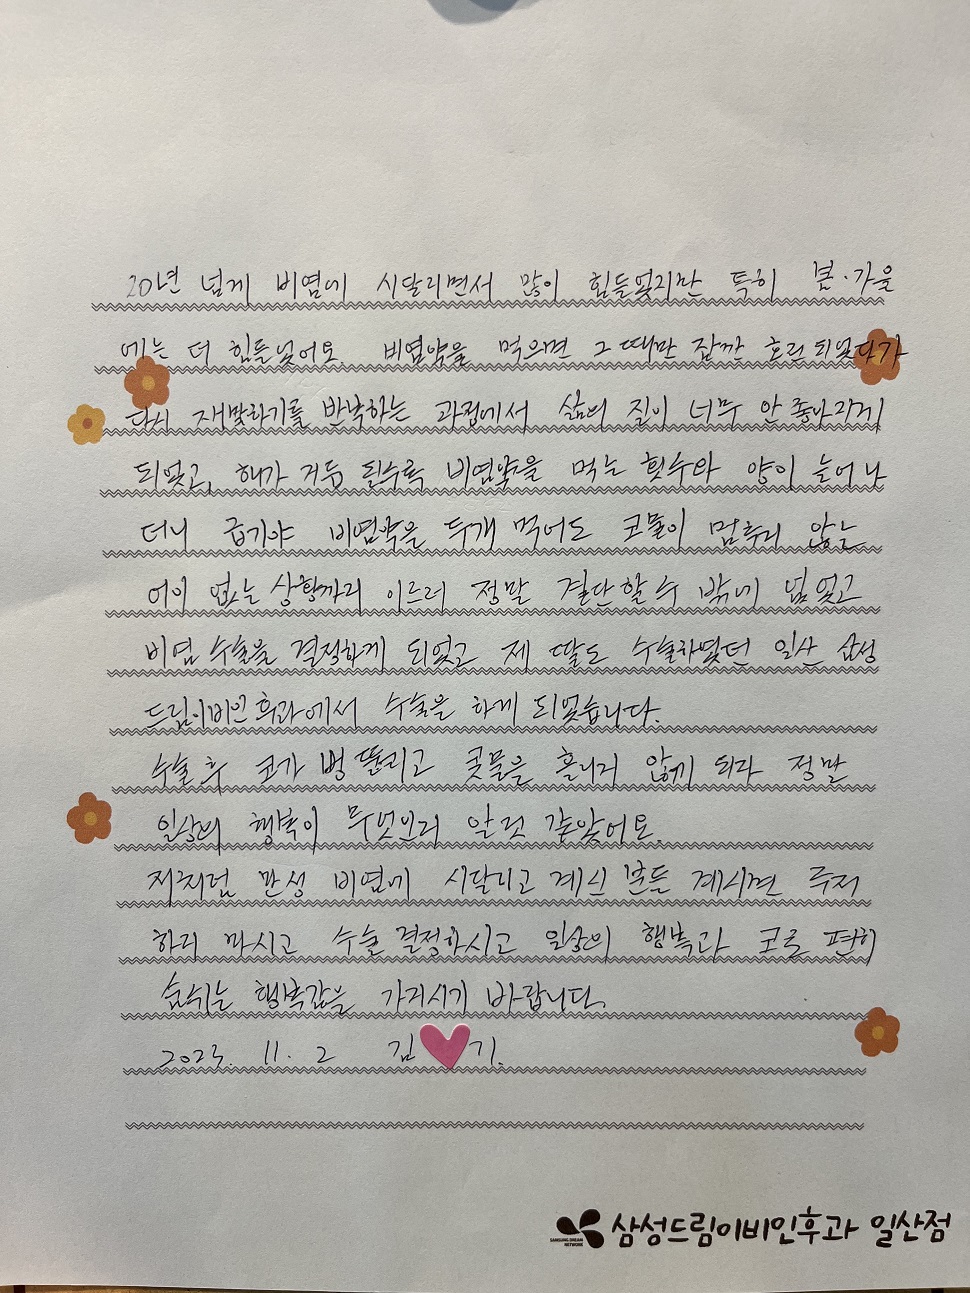 20년 넘게 비염에 시달리면서 많이 힘들었지만 특히 봄·가을
에는 더 힘들었어요. 비염약을 먹으면 그때만 잠깐 호전되었다가
다시 재발하기를 반복하는 과정에서 삶의 질이 너무 안좋아지게
되었고, 해가 거듭 될수록 비염약을 먹는 횟수와 양이 늘어나
더니 급기야 비염약을 두개 먹어도 콧물이 멈추지 않는
어이 없는 상황까지 이르러 정말 결단할 수 밖에 없었고
비염 수술을 결정하게 되었고 제 딸도 수술하였던 일산 삼성
드림이비인후과에서 수술을 하게 되었습니다.
수술 후 코가 뻥 뚫리고 콧물을 흘리지 않게 되자 정말
일상의 행복이 무엇인지 알 것 같았어요.
저처럼 만성 비염에 시달리고 계신 분들 계시면 주저
하지 마시고 수술 결정하시고 일상의 행복과 코로 편히
숨쉬는 행복감을 가지시기 바랍니다.
2023. 11. 2 김 기.
SAMSUNG DREAM NETWORK
삼성드림이비인후과 일산점